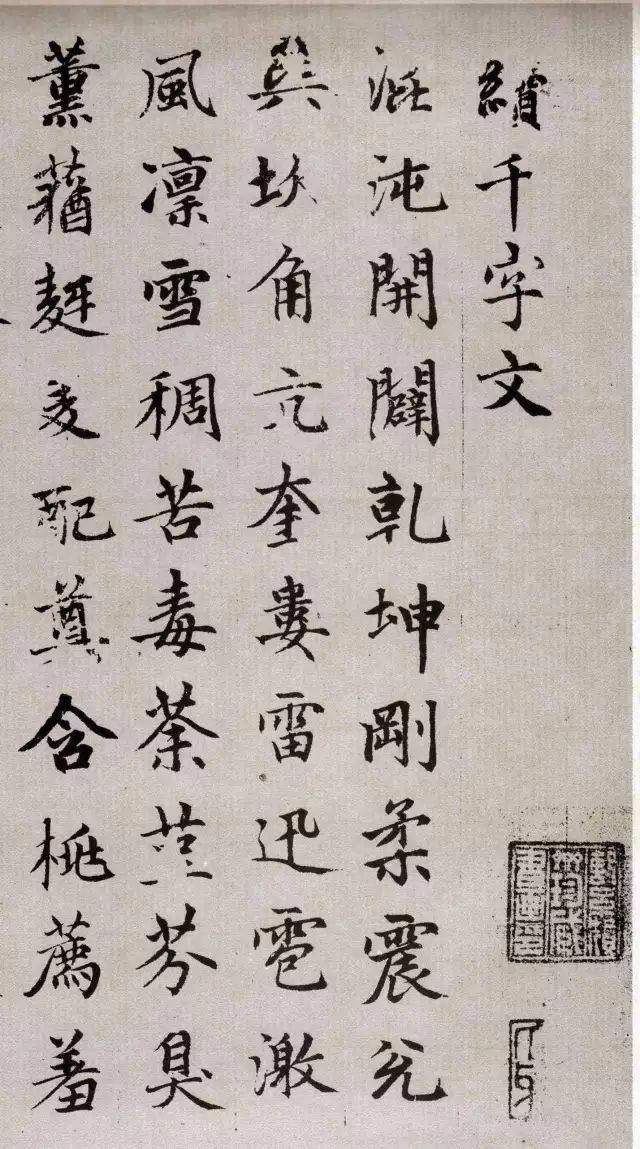 續千字文
混沌開闢乾坤剛柔震兌
巽坎角亢奎婁雷迅雹激
風凜雪稠苦毒荼菫芬臭
薰蕕麥配尊含桃薦羞